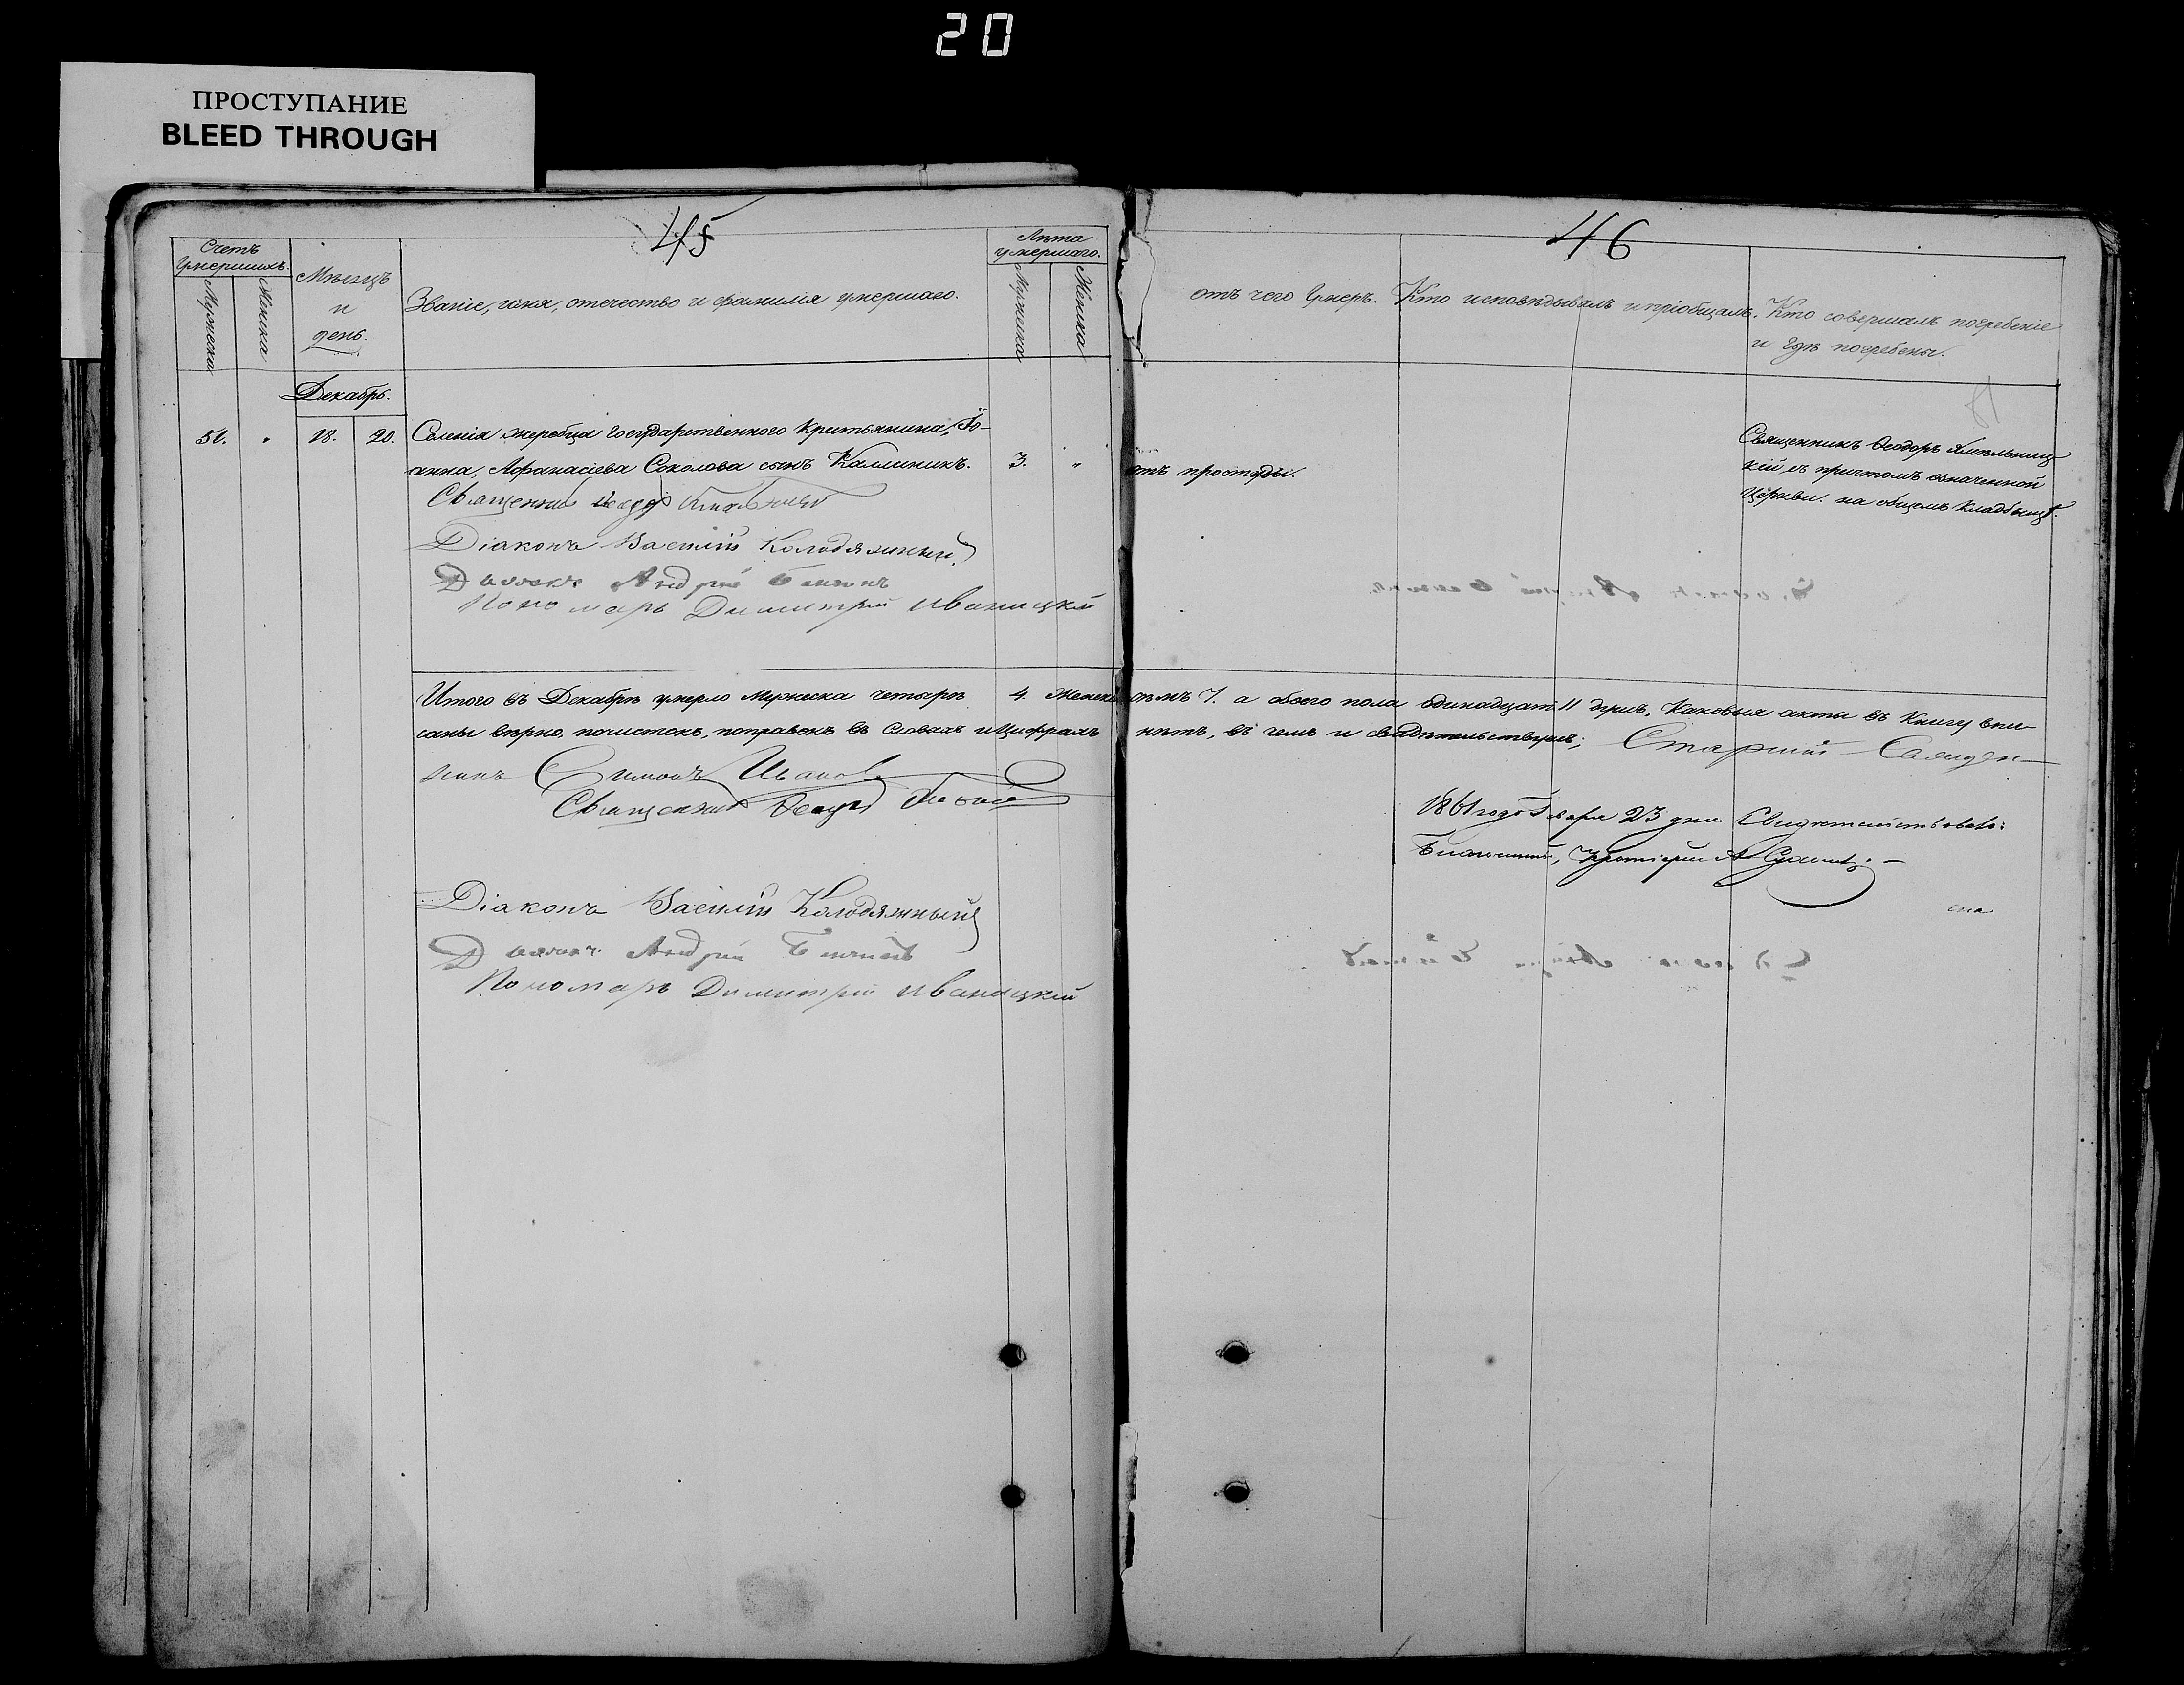 20
ПРОСТУПАНИЕ
BLEED THROUGH
45
46
Счетъ умершихъ.
Мужеска
Женска
Мѣсяцъ и день.
Званіе, имя, отечество и фамилія умершаго.
Лѣта умершаго.
Мужеска
Женска
отъ чего умеръ.
Кто исповѣдывалъ и пріобщалъ.
Кто совершалъ погребеніе
и гдѣ погребены.
Декабрь.
51. " 18. 20. Селенія жеребца государственного крестьянина, Іо-
анна, Афанасіева Соколова сынъ Каллиникъ. 3. " отъ простуды.
Священникъ Ѳеодоръ
кій, съ причтомъ означенной
Церкви. на общемъ кладбищѣ.
Священник
Діаконъ Василій Колодяжный
Андрей
Пономарь Димитрій Иваницкій
Итого въ Декабрѣ умерло мужеска четыре 4 женска семь 7. а обоего пола одинадцать 11 душъ, каковыя акты въ книгу впи-
саны вѣрно, почистокъ, поправокъ въ словахъ и цифрахъ нѣтъ, въ чемъ и свидѣтельствуемъ; Старшій Священ-
никъ Симонъ
Священник
1861 года Января 23 дня. Свидетельствовалъ:
Благочинный, Протоіерей
Діаконъ Василій Колодяжный
Андрей
Пономарь Димитрій Иваницкій